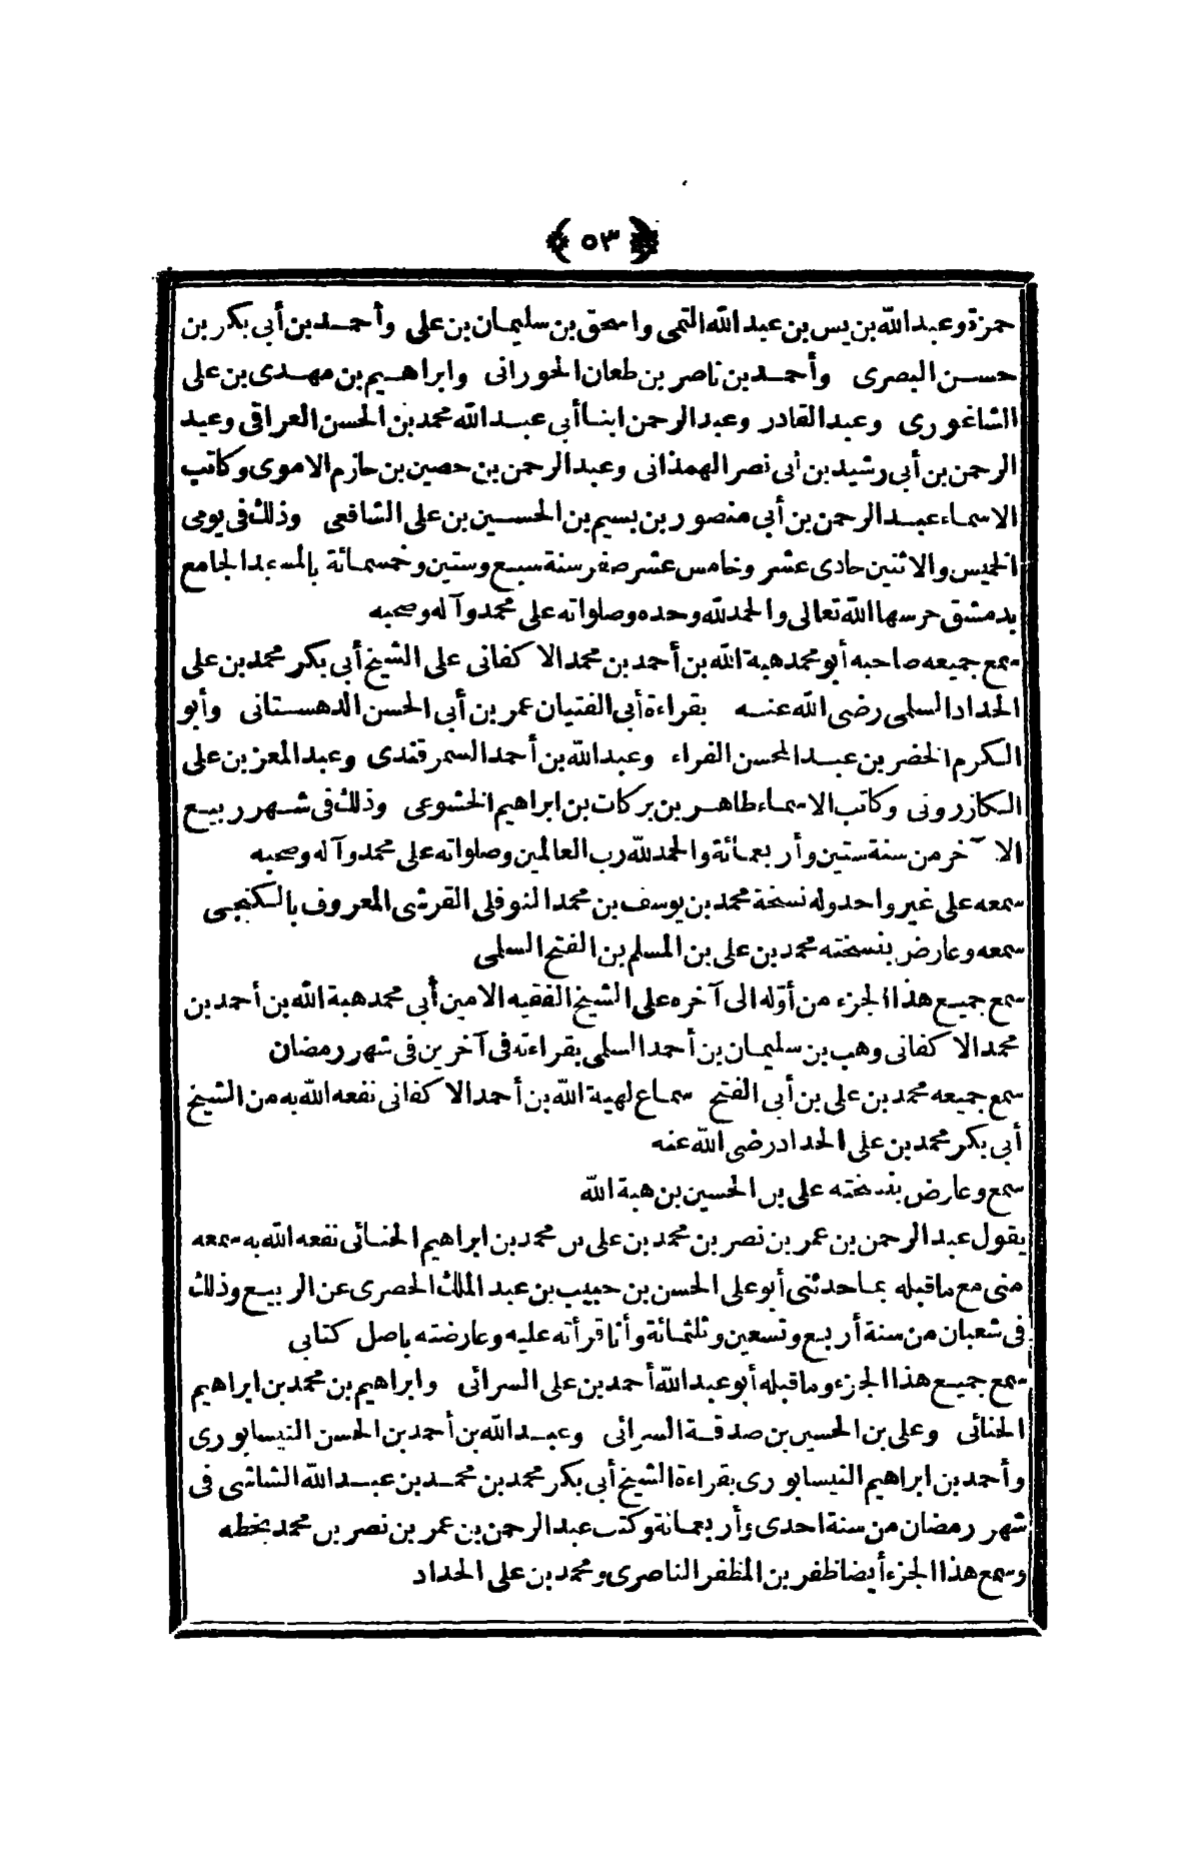 ﴿ ٥٣ ﴾
حمزة وعبد الله بن يس بن عبد الله التمى واسحق بن سليمان بن على وأحمد بن أبى بكر بن
حسن البصرى وأحمد بن ناصر بن طعان الحورانى وابراهيم بن مهدى بن على
الشاغورى وعبد القادر وعبد الرحمن ابنا أبى عبد الله محمد بن الحسن العراقى وعبد
الرحمن بن أبى رشيد بن أبى نصر الهمذانى وعبد الرحمن بن حصين بن حازم الاموى وكاتب
الاسماء عبد الرحمن بن أبى منصور بن بسيم بن الحسين بن على الشافعى وذلك فى يومى
الخميس والاثنين حادى عشر وخامس عشر صفر سنة سبع وستين وخمسمائة بالمسجد الجامع
بدمشق حرسها الله تعالى والحمد لله وحده وصلواته على محمد وآله وصحبه
سمع جميعه صاحبه أبو محمد هبة الله بن أحمد بن محمد الاكفانى على الشيخ أبى بكر محمد بن على
الحداد السلمى رضى الله عنه بقراءة أبى الفتيان عمر بن أبى الحسن الدهستانى وأبو
الكرم الخضر بن عبد المحسن الفراء وعبد الله بن أحمد السمرقندى وعبد المعز بن على
الكازرونى وكاتب الاسماء طاهر بن بركات بن ابراهيم الخشوعى وذلك فى شهر ربيع
الآخر من سنة ستين وأربعمائة والحمد لله رب العالمين وصلواته على محمد وآله وصحبه
سمعه على غير واحد وله نسخة محمد بن يوسف بن محمد النوفلى القرشى المعروف بالكنجى
سمعه وعارض بنسخته محمد بن على بن المسلم بن الفتح السلمى
سمع جميع هذا الجزء من أوّله الى آخره على الشيخ الفقيه الامين أبى محمد هبة الله بن أحمد بن
محمد الاكفانى وهب بن سليمان بن أحمد السلمى بقراءته فى آخرين فى شهر رمضان
سمع جميعه محمد بن على بن أبى الفتح سماع لهبة الله بن أحمد الاكفانى نفعه الله به من الشيخ
أبى بكر محمد بن على الحداد رضى الله عنه
سمع وعارض بنسخته على بن الحسين بن هبة الله
يقول عبد الرحمن بن عمر بن نصر بن محمد بن على بن محمد بن ابراهيم الحنائى نفعه الله به سمعه
منى مع ما قبله بما حدثنى أبو على الحسن بن حبيب بن عبد الملك الحصرى عن الربيع وذلك
فى شعبان من سنة أربع وتسعين وثلثمائة وأنا قرأته عليه وعارضته باصل كتابى
سمع جميع هذا الجزء وما قبله أبو عبد الله أحمد بن على السرائى وابراهيم بن محمد بن ابراهيم
الحنائى وعلى بن الحسين بن صدقة السرائى وعبد الله بن أحمد بن الحسن النيسابورى
وأحمد بن ابراهيم النيسابورى بقراءة الشيخ أبى بكر محمد بن محمد بن عبد الله الشاشى فى
شهر رمضان من سنة احدى وأربعمائة وكتب عبد الرحمن بن عمر بن نصر بن محمد بخطه
وسمع هذا الجزء أيضا ظفر بن المظفر الناصرى ومحمد بن على الحداد